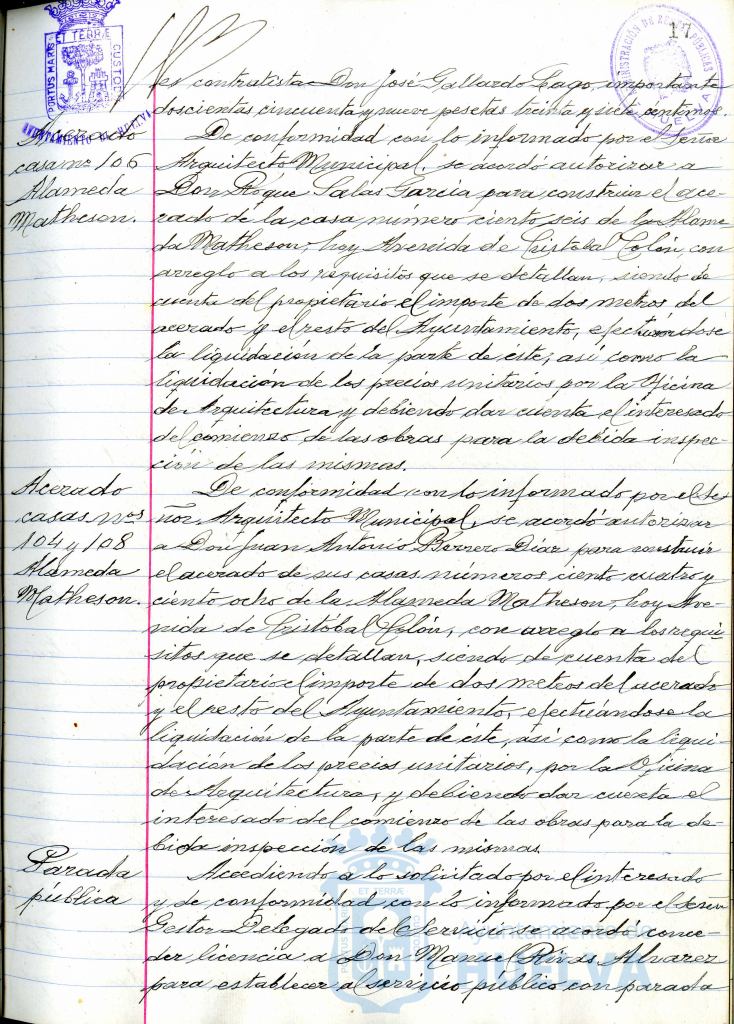 17
PORTUS MARIS ET TERRÆ CUSTODIA
AYUNTAMIENTO DE HUELVA
ADMINISTRACIÓN DE
HUELVA
es contratista Don José Gallardo Lago, importante
doscientas cincuenta y nueve pesetas treinta y siete centimos.
Acerado
casa nº 106
Alameda
Matheson.
De conformidad con lo informado por el Señor
Arquitecto Municipal, se acordó autorizar a
Don Roque Salas García para construir el ace-
rado de la casa número ciento seis de la Alame-
da Matheson, hoy Avenida de Cristobal Colón, con
arreglo a los requisitos que se detallan, siendo de
cuenta del propietario el importe de dos metros del
acerado y el resto del Ayuntamiento, efectuandose
la liquidación de la parte de éste, así como la
liquidación de los precios unitarios por la Oficina
de Arquitectura y debiendo dar cuenta el interesado
del comienzo de las obras para la debida inspec-
ción de las mismas.
Acerado
casas nos
104 y 108
Alameda
Matheson.
De conformidad con lo informado por el Se-
ñor Arquitecto Municipal, se acordó autorizar
a Don Juan Antonio Borrero Díaz para construir
el acerado de sus casas números ciento cuatro y
ciento ocho de la Alameda Matheson, hoy Ave-
nida de Cristobal Colón, con arreglo a los requi-
sitos que se detallan, siendo de cuenta del
propietario el importe de dos metros del acerado
y el resto del Ayuntamiento, efectuándose la
liquidación de la parte de éste, así como la liqui-
dación de los precios unitarios, por la Oficina
de Arquitectura, y debiendo dar cuenta el
interesado del comienzo de las obras para la de-
bida inspección de las mismas.
Parada
pública
Accediendo a lo solicitado por el interesado
y de conformidad con lo informado por el señor
Gestor Delegado de Servicio se acordó conce-
der licencia a Don Manuel Rivas Alvarez
para establecer al servicio público con parada
Ayuntamiento de
HUELVA